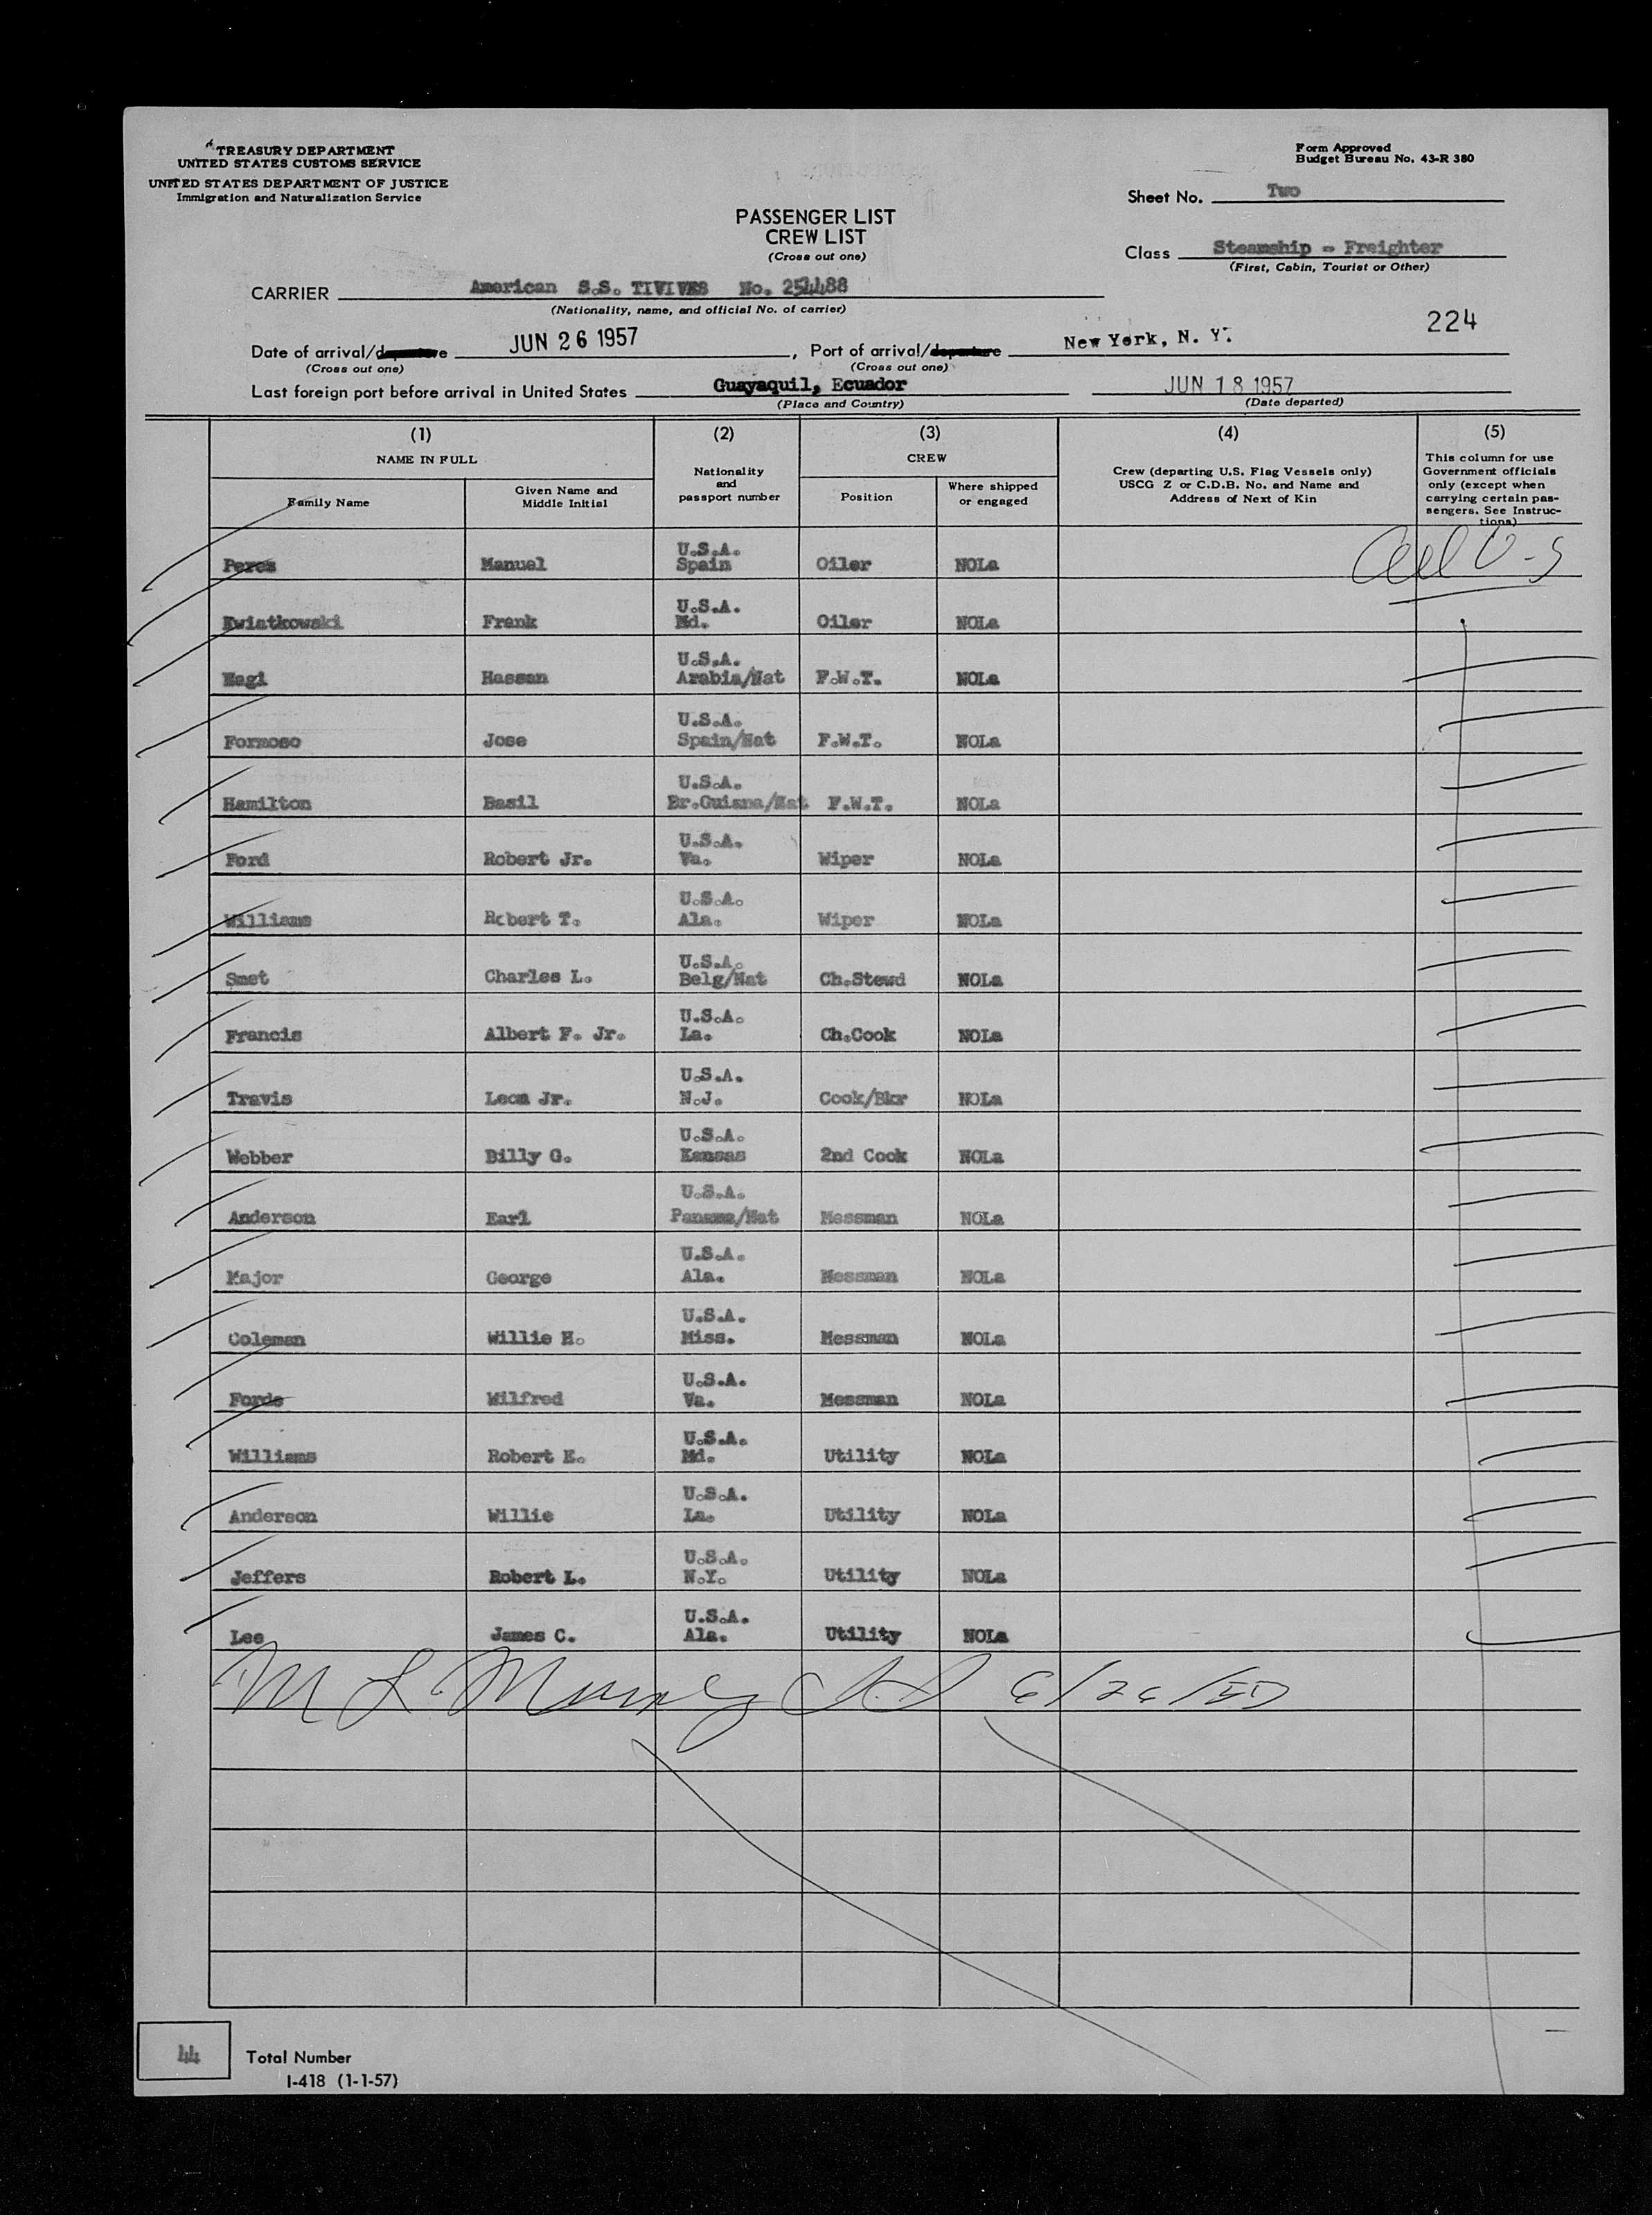 TREASURY DEPARTMENT
UNITED STATES CUSTOMS SERVICE
UNITED STATES DEPARTMENT OF JUSTICE
Immigration and Naturalization Service
Form Approved
Budget Bureau No. 43-R 380
Sheet No. Two
PASSENGER LIST
CREW LIST
(Cross out one)
Class Steamship - Freighter
(First, Cabin, Tourist or Other)
CARRIER American S.S. TIVIVES No. 254488
(Nationality, name, and official No. of carrier)
224
Date of arrival/departure JUN 26 1957, Port of arrival/departure New York, N. Y.
(Cross out one) (Cross out one)
Last foreign port before arrival in United States Guayaquil, Ecuador JUN 18 1957
(Place and Country) (Date departed)
(1) (2) (3) (4) (5)
NAME IN FULL
Family Name
Given Name and
Middle Initial
Nationality
and
passport number
CREW
Position
Where shipped
or engaged
Crew (departing U.S. Flag Vessels only)
USCG Z or C.D.B. No. and Name and
Address of Next of Kin
This column for use
Government officials
only (except when
carrying certain pas-
sengers. See Instruc-
tions)
U.S.A.
Peres Manuel Spain Oiler NOLa
All U-S
U.S.A.
Kwiatkowski Frank Md. Oiler NOLa
U.S.A.
Nagi Hassan Arabia/Nat F.W.T. NOLa
U.S.A.
Formoso Jose Spain/Nat F.W.T. NOLa
U.S.A.
Hamilton Basil Br.Guiana/Nat F.W.T. NOLa
U.S.A.
Ford Robert Jr. Va. Wiper NOLa
U.S.A.
Williams Robert T. Ala. Wiper NOLa
U.S.A.
Smet Charles L. Belg/Nat Ch.Stewd NOLa
U.S.A.
Francis Albert F. Jr. La. Ch.Cook NOLa
U.S.A.
Travis Leon Jr. N.J. Cook/Bkr NOLa
U.S.A.
Webber Billy G. Kansas 2nd Cook NOLa
U.S.A.
Anderson Earl Panama/Nat Messman NOLa
U.S.A.
Major George Ala. Messman NOLa
U.S.A.
Coleman Willie H. Miss. Messman NOLa
U.S.A.
Forde Wilfred Va. Messman NOLa
U.S.A.
Williams Robert E. Md. Utility NOLa
U.S.A.
Anderson Willie La. Utility NOLa
U.S.A.
Jeffers Robert L. N.Y. Utility NOLa
U.S.A.
Lee James C. Ala. Utility NOLa
M L 6/26/57
44
Total Number
I-418 (1-1-57)